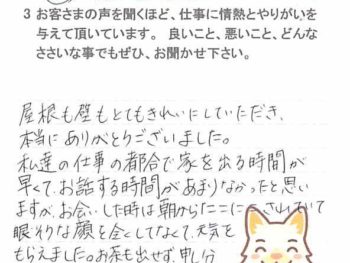 3 お客さまの声を聞くほど、仕事に情熱とやりがいを
与えて頂いています。 良いこと、悪いこと、どんな
ささいな事でもぜひ、お聞かせ下さい。
屋根も壁もとてもきれいにしていただき、
本当にありがとうございました。
私達の仕事の都合で家を出る時間が
早くて、お話する時間があまりなかったと思い
ますが、お会いした時は朝からにこにこされていて
眠そうな顔を全くしてなくて、元気を
もらえました。お茶も出せず、申し分